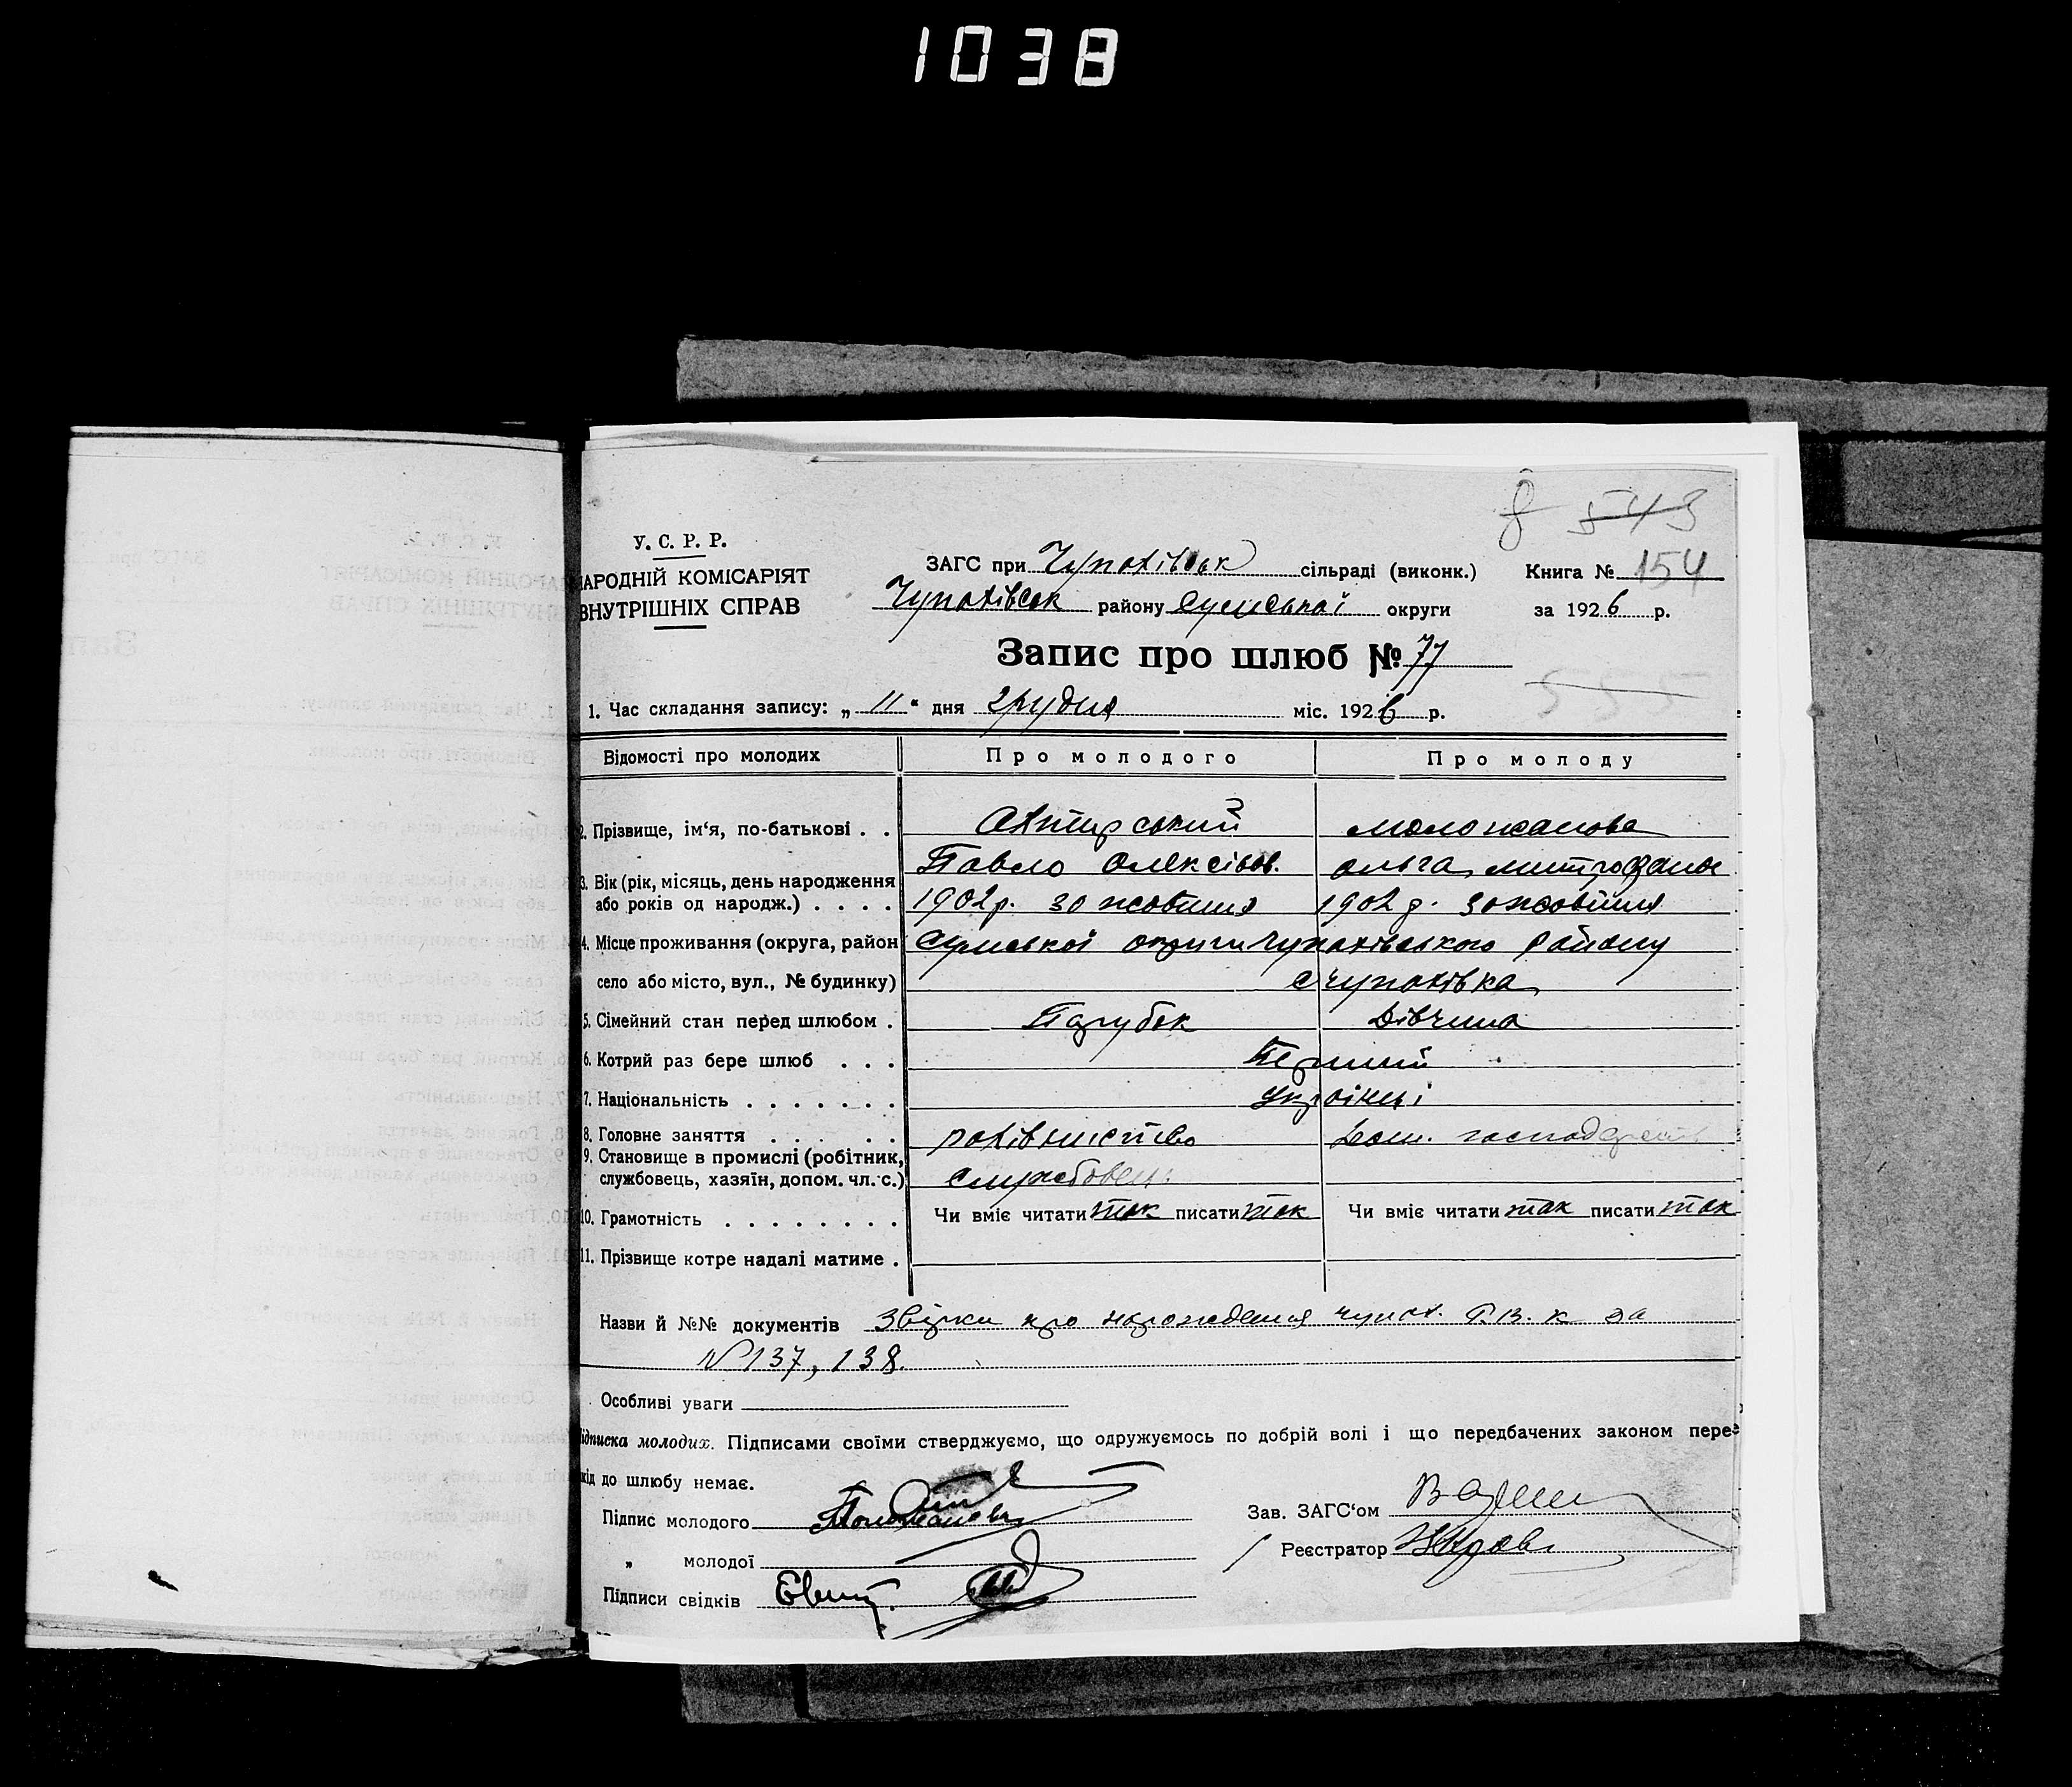 1038
8 543
У. С. Р. Р.
НАРОДНІЙ КОМІСАРІЯТ
ВНУТРІШНІХ СПРАВ
ЗАГС при Чупахівськ сільраді (виконк.) Книга № 154
Чупахівськ району Сумської округи за 1926 р.
Запис про шлюб № 77
555
1. Час складання запису: „ 11 " дня грудня міс. 1926 р.
Відомості про молодих Про молодого Про молоду
2. Прізвище, ім'я, по-батькові . . Охтирський Моложанова
Павло Олексієв. Ольга Митрофанов
3. Вік (рік, місяць, день народження
або років од народж.) . . . . 1902 р. 30 жовтня 1902 р. 30 жовтня
4. Місце проживання (округа, район Сумської округи Чупахівського району
село або місто, вул., № будинку) с Чупахівка
5. Сімейний стан перед шлюбом . Парубок Дівчина
6. Котрий раз бере шлюб . . . Перший
7. Національність . . . . . . . Українці
8. Головне заняття . . . . . рахівництво дом. господарств
9. Становище в промислі (робітник,
службовець, хазяїн, допом. чл. с.) Службовець
10. Грамотність . . . . . . . . Чи вміє читати так писати так Чи вміє читати так писати так
11. Прізвище котре надалі матиме .
Назви й №№ документів про народження Чупах. Р.В.К за
№ 137, 138.
Особливі уваги
ідписка молодих. Підписами своїми стверджуємо, що одружуємось по добрій волі і що передбачених законом пере-
кід до шлюбу немає.
Підпис молодого
Зав. ЗАГС'ом
„ молодої
Реєстратор
Підписи свідків